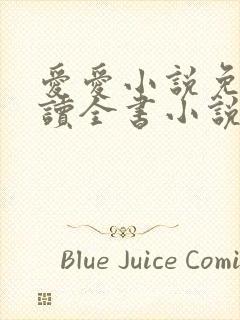 愛愛小説免
讀全書小説
Blue Juice Comi